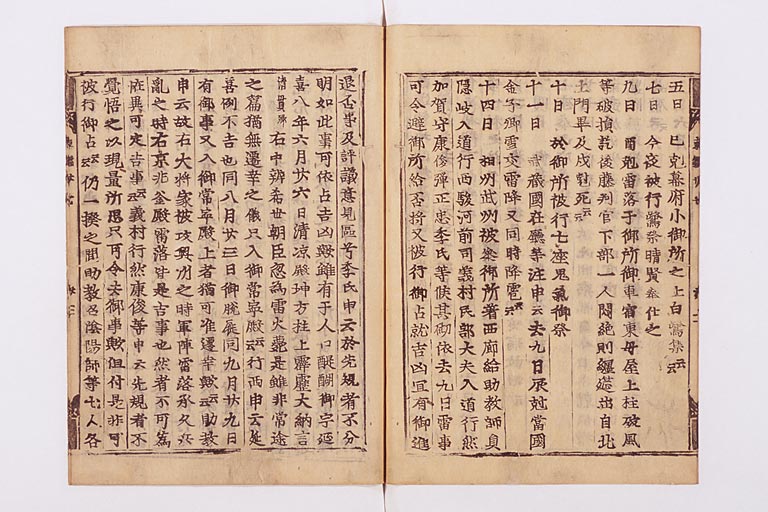 五日 巳剋幕府小御所之上白鷺集云云
七日 今夜被行鷺祭晴賢奉仕之
九日 酉剋雷落于御所御車宿東母屋上柱破風
等破損訖後藤判官下部一人悶絶則纏莚出自北
土門畢及戌剋死云云
十日 於御所被行七座鬼氣御祭
十一日 武藏國在廳等注申云去九日辰剋當國
金子郷雪交雷降又同時降雹云云
十四日 相州武州被參御所著西廊給助教師員
隱岐入道行西駿河前司義村民部大夫入道行然
加賀守康俊彈正忠季氏等候其砌依去九日雷事
可令避御所給否將又被行御占就吉凶宜有御進
退否事及評議意見區分季氏申云於先規者不分
明如此事可依占吉凶歟雖有于人口醍醐御宇延
喜八年六月廿六日清凉殿坤方柱上霹靂大納言
清貫卿 右中辨希世朝臣忽爲雷火斃是雖非常途
之篇猶無遷幸之儀只入御常寧殿云云行西申云延
喜例不吉也同八月廿三日御脱屣同九月廿九日
有御事又入御常寧殿上者猶可准遷幸歟云云助教
申云故右大將家被攻奥州之時軍陣雷落承久兵
亂之時右京兆釜殿雷落皆是吉事也然者不可爲
依異可定吉事云云義村行然康俊等申云先規者不
覺悟之以現量所思只可令去御事歟但付是非可
被行御占云云仍一揆之間助教召陰陽師等七人各